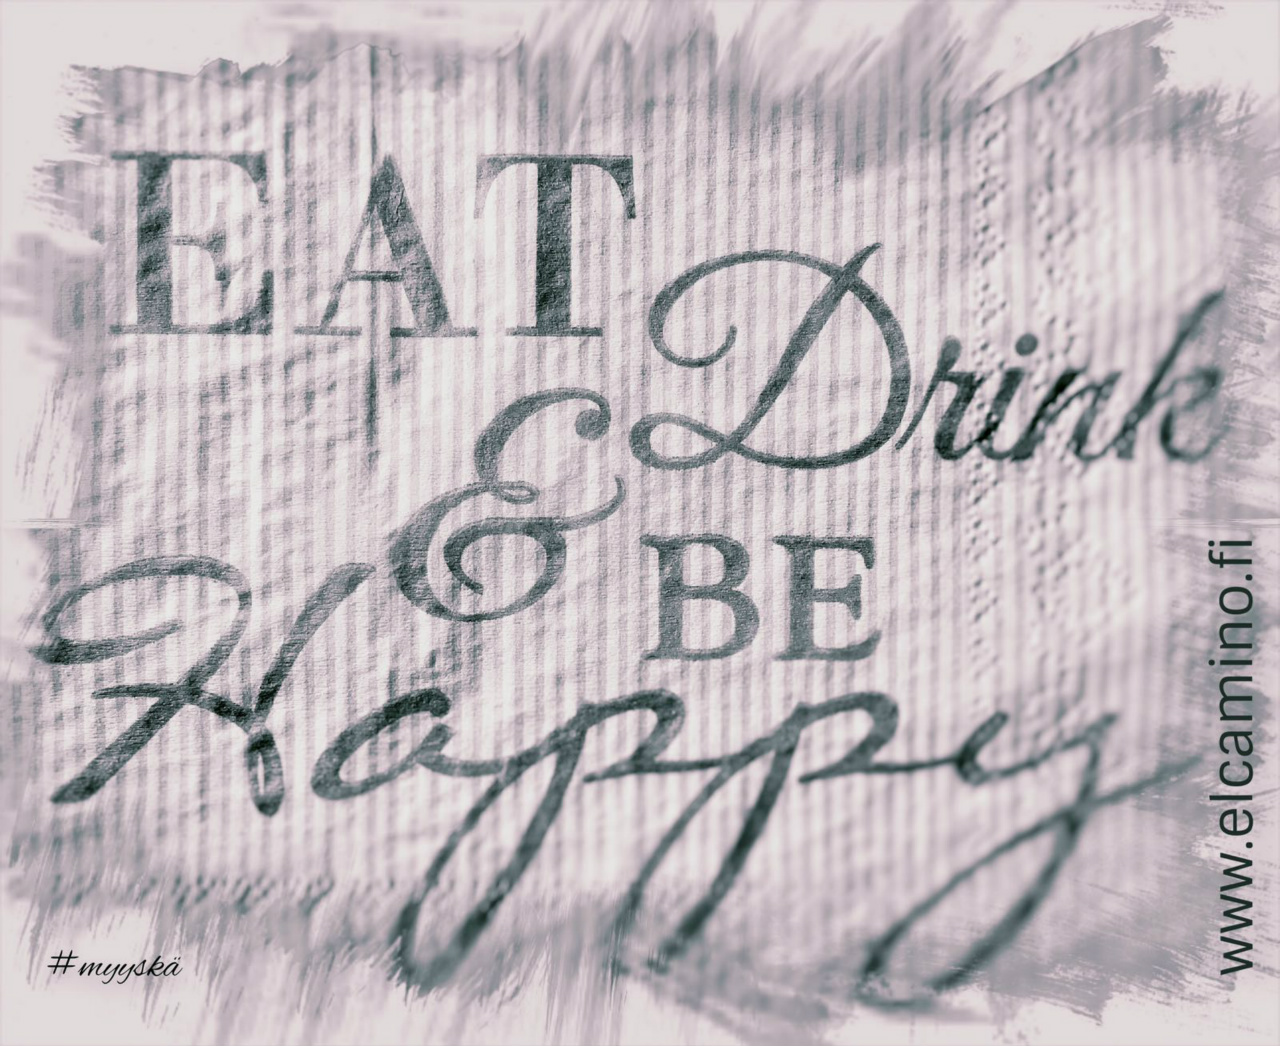 EAT
Drink
& BE
Happy
www.elcamino.fi
#myyskä